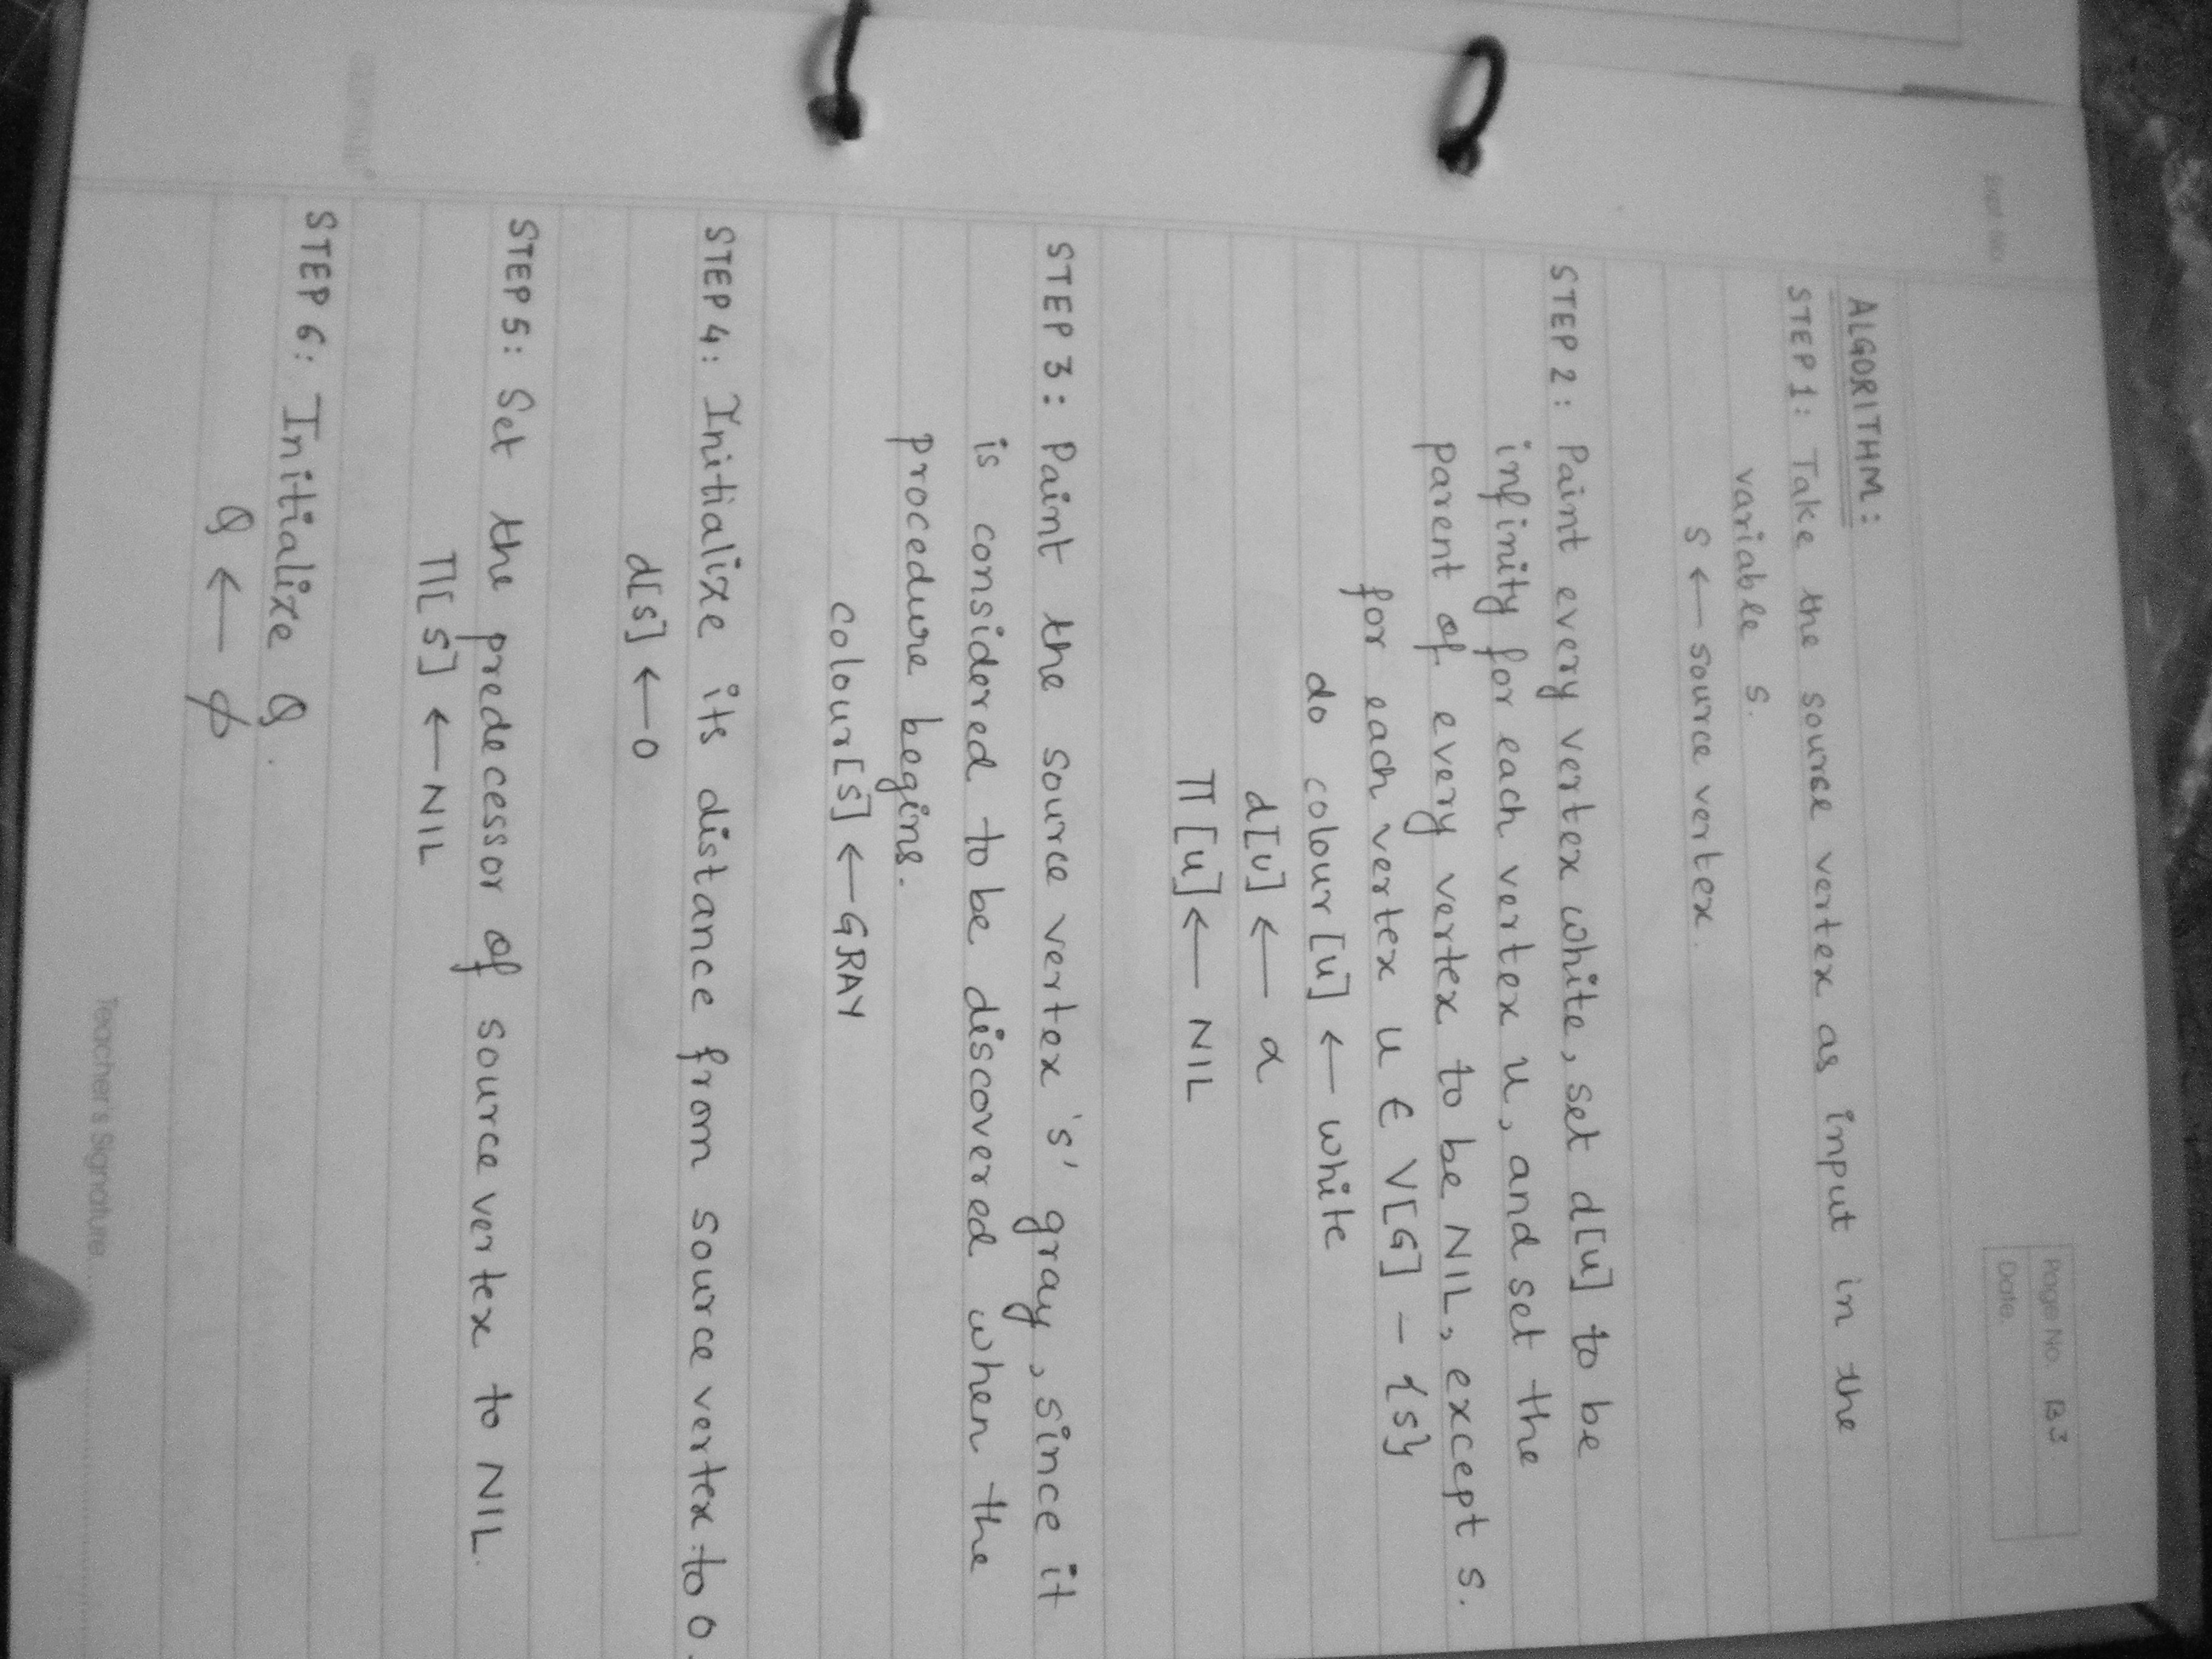 Page No. B3
Date.
ALGORITHM:
STEP 1: Take the source vertex as input in the
variable s.
s ← source vertex.
STEP 2: Paint every vertex white, set d[u] to be
infinity for each vertex u, and set the
parent of every vertex to be NIL, except s.
for each vertex u ∈ V[G] - {s}
do colour[u] ← white
d[u] ← α
π[u] ← NIL
STEP 3: Paint the source vertex 's' gray, since it
is considered to be discovered when the
procedure begins.
colour[s] ← GRAY
STEP 4: Initialize its distance from source vertex to 0.
d[s] ← 0
STEP 5: Set the predecessor of source vertex to NIL.
π[s] ← NIL
STEP 6: Initialize Q.
Q ← ϕ
Teacher's Signature